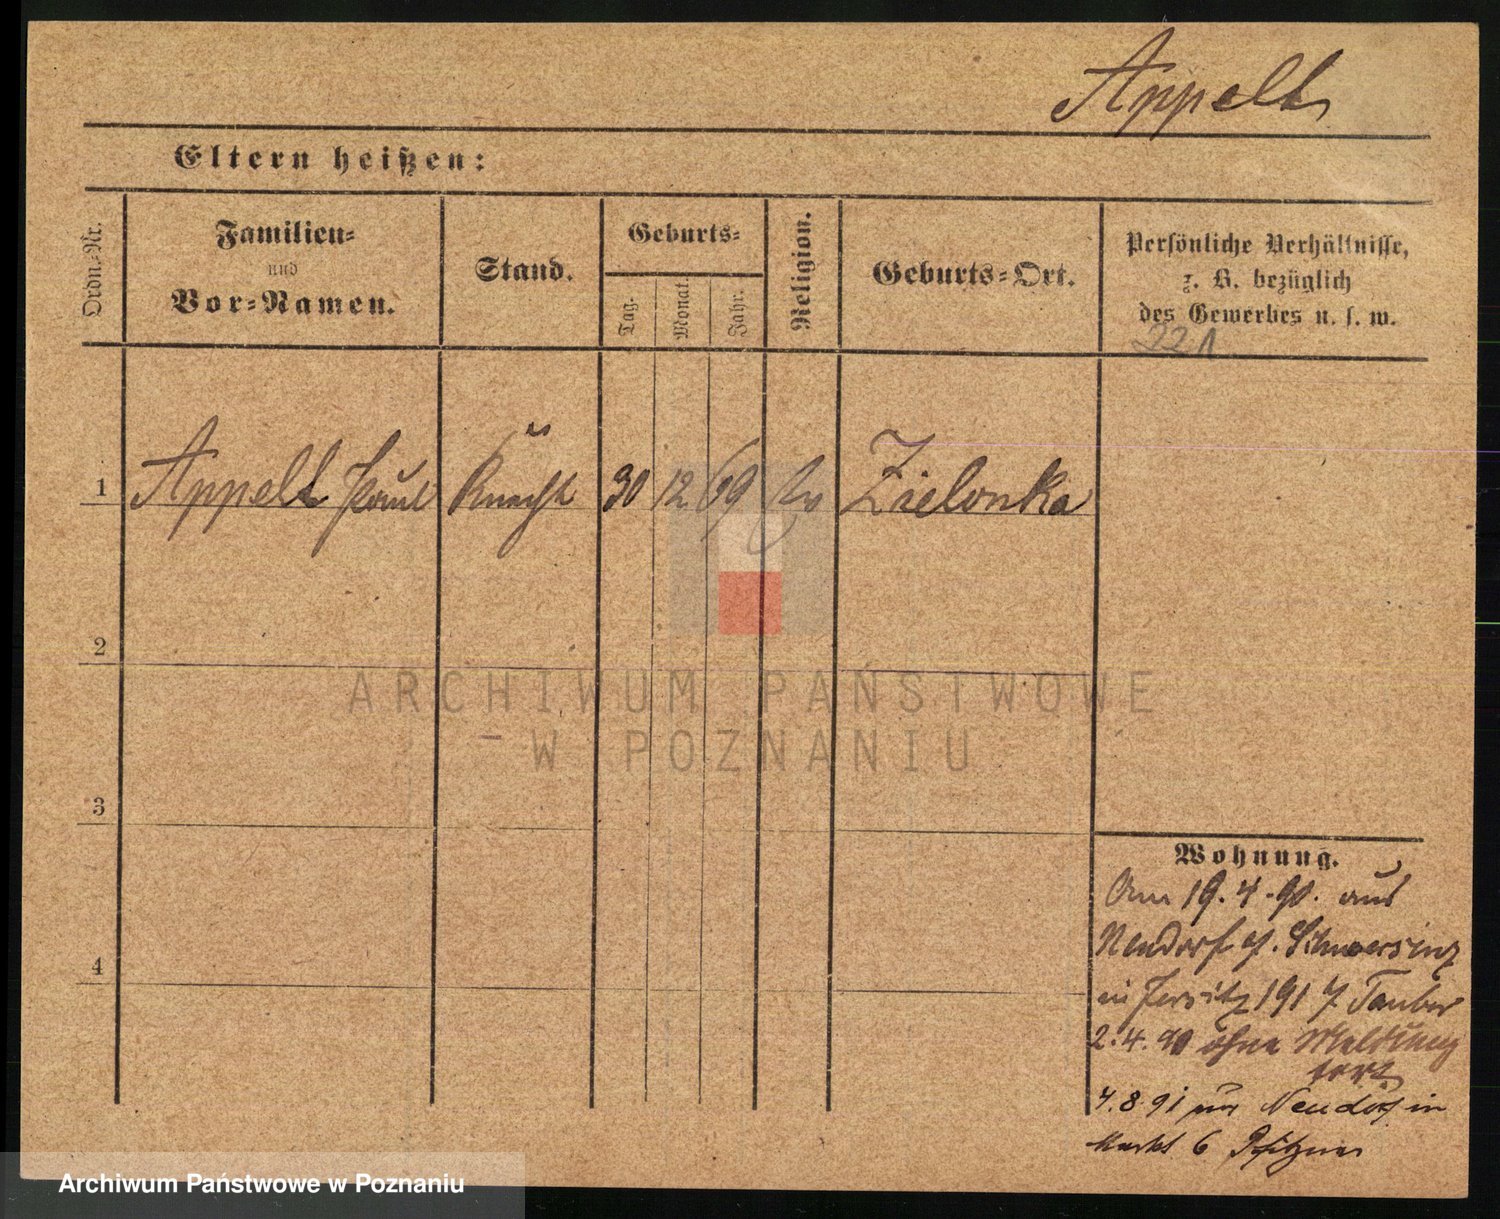 Appelt
Eltern heißen:
Ordn.-Nr.
Familien-
und
Vor-Namen.
Stand.
Geburts-
Tag.
Monat.
Jahr.
Religion.
Geburts-Ort.
Persönliche Verhältnisse,
z. B. bezüglich
des Gewerbes u. s. w.
221
1 Appelt Paul Knecht 30 12 69 Zielonka
2
3
4
ARCHIWUM PAŃSTWOWE
W POZNANIU
Wohnung.
Am 19.4.90. aus
Neudorf Schwersenz
in Jersitz 191 Tauber
2.4.90 ohne Meldung
fort
4.8.91 Neudorf in
Markt 6 Pfitzner
Archiwum Państwowe w Poznaniu